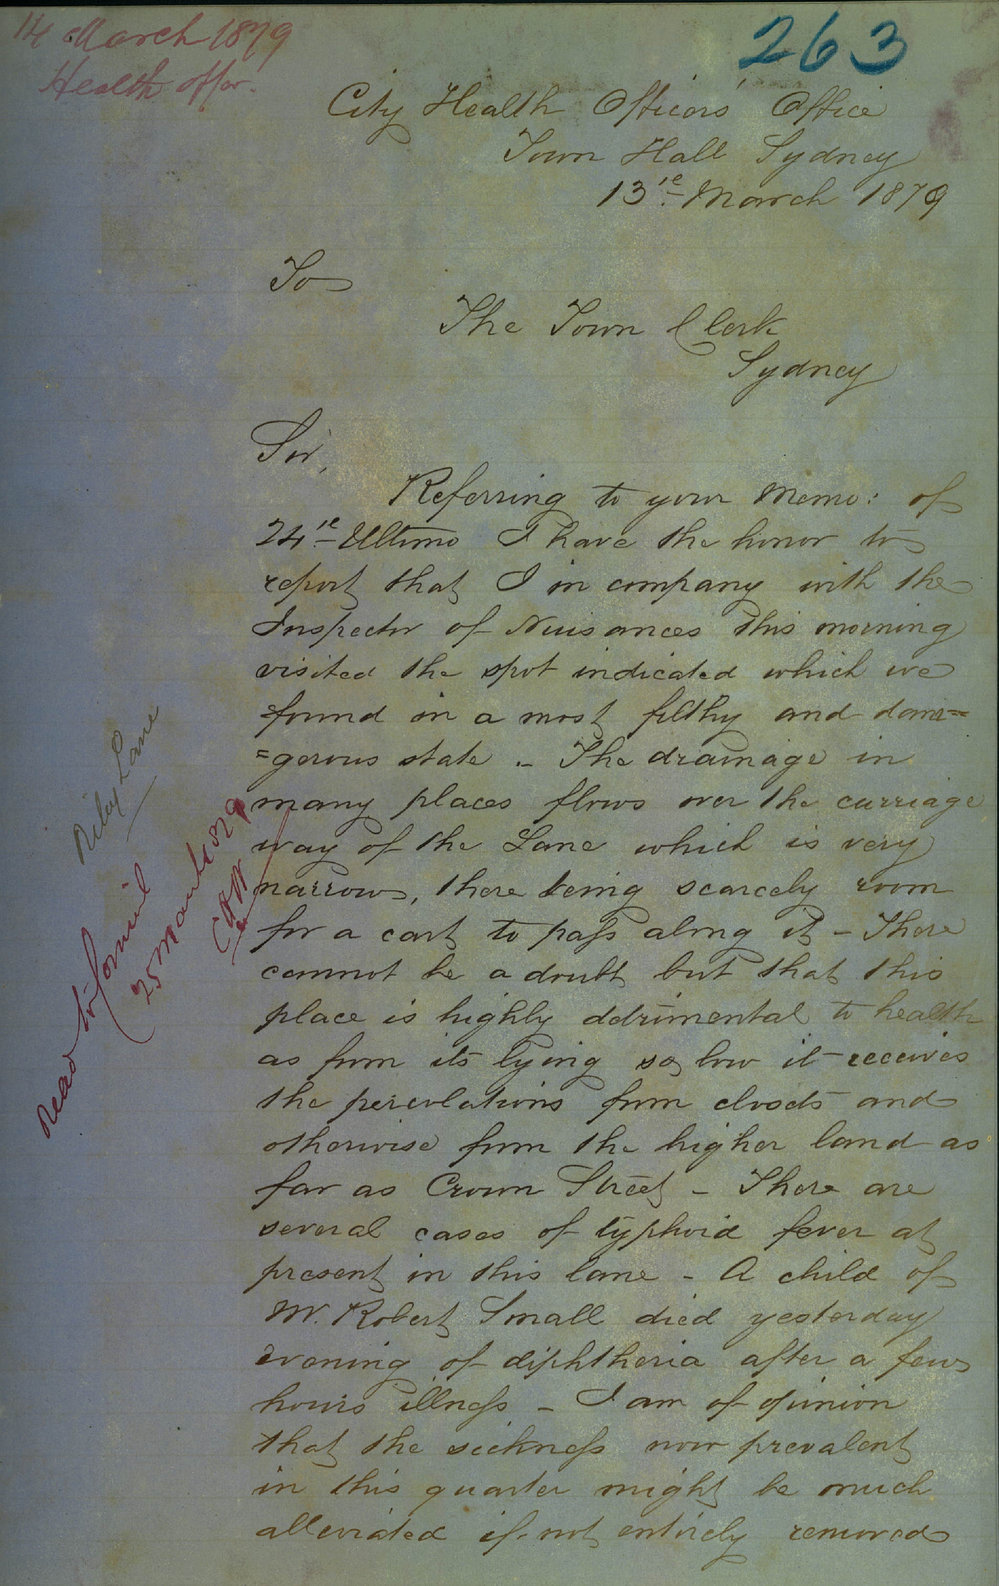 14 March 1879
Health offcr.
263
City Health Officers' Office
Town Hall Sydney
13th March 1879
To
The Town Clerk
Sydney
Sir,
Referring to your Memo: of
24th Ultimo I have the honor to
report that I in company with the
Inspector of Nuisances this morning
visited the spot indicated which we
found in a most filthy and dan=
=gerous state . - The drainage in
many places flows over the carriage
way of the Lane which is very
narrow, there being scarcely room
for a cart to pass along it - There
cannot be a doubt but that this
place is highly detrimental to health
as from its lying so low it receives
the percolations from closets and
otherwise from the higher land as
far as Crown Street - There are
several cases of typhoid fever at
present in this lane - A child of
Mr. Robert Small died yesterday
evening of diphtheria after a few
hours illness - I am of opinion
that the sickness now prevalent
in this quarter might be much
alleviated if not entirely removed
Riley Lane
Read to Council
25 March 1879